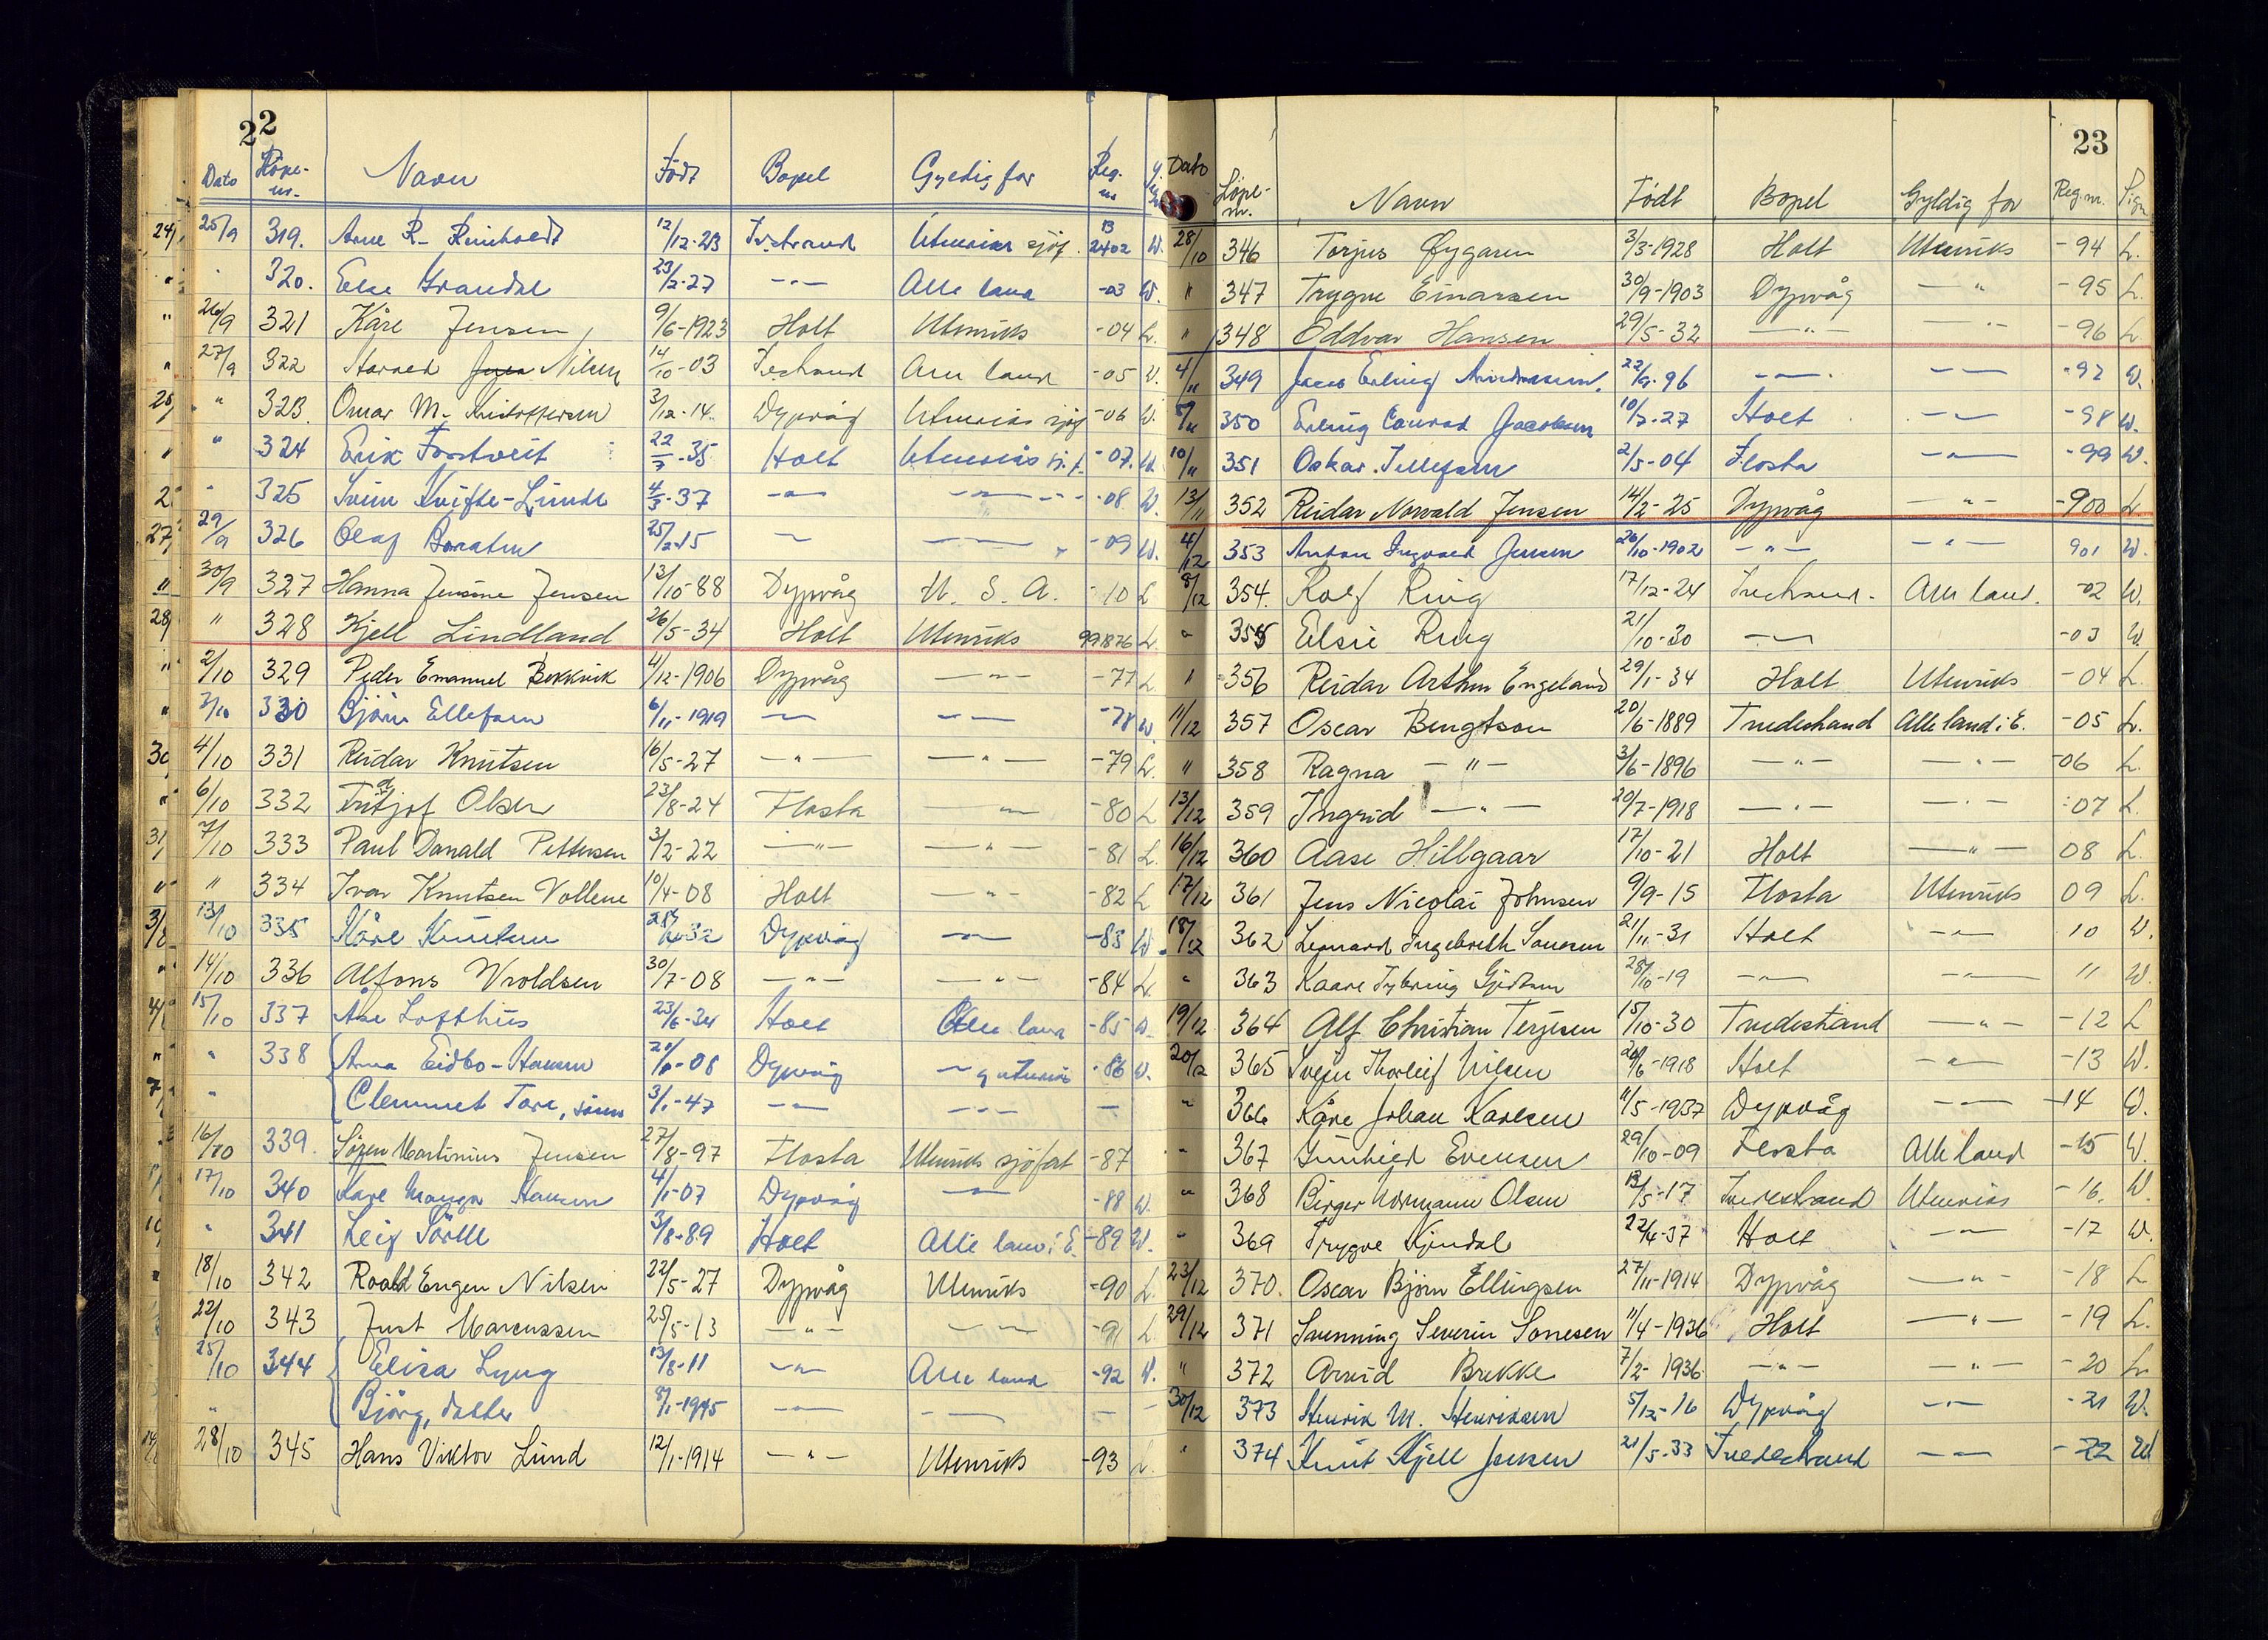 22
Dato Löpe-nr. Navn Født Bopel Gyldig for Reg. nr Sign
25/9 319. Arne R. Reinholdt 12/12-23 Tvestrand Utenriks sjøf. B 2402 W.
" 320. Else Grandal 23/2-27 -"- Alle land -03 W.
26/9 321 Kåre Jensen 9/6-1923 Holt Utenriks -04 L.
27/9 322 Harald Nilsen 14/10-03 Tvestrand Alle land -05 W.
" 323. Omar M. Kristoffersen 3/12-14. Dypvåg Utenriks sjøf -06 W.
" 324 Erik Forstveit 22/7-35 Holt Utenriks -07. W.
" 325 Svein Kvifte-Linde 4/3-37 -"- -"- -08 W.
29/9 326 Olaf 25/2-15 -"- -"- -09 W.
30/9 327 Hanna Jensine Jensen 13/10-88 Dypvåg U. S. A. -10 L
" 328 Kjell Lindland 26/5-34 Holt Utenriks 991876 L.
2/10 329 Peder Emanuel Bokkvik 4/12-1906 Dypvåg -"- -77 L
3/10 330 Björn Ellefsen 6/11-1919 -"- -"- -78 W.
4/10 331 Reidar Knutsen 16/5-27 -"- -"- -79 L.
6/10 332 Fridtjof Olsen 23/8-24 Flosta -"- -80 L
7/10 333 Paul Donald Pettersen 3/2-22 -"- -"- -81 L.
" 334 Ivar Knutsen Vollene 10/4-08 Holt -"- -82 L
13/10 335 Kåre Knutsen Dypvåg -"- -83 W.
14/10 336 Alfons Vroldsen 30/7-08 -"- -"- -84 L.
15/10 337 Åse Lofthus 23/6-34 Holt Alle land -85 W.
" 338 Anna Eidbo-Hansen Dypvåg -86 W.
" Clemmet Tore, sönn 3/1-47 -"- -"- -
16/10 339. Sören Martinius Jensen 27/8-97 Flosta Utenriks sjöfart -87
17/10 340 Kåre Hansen 4/1-07 Dypvåg -"- -88 W.
" 341 Leif Sörlle 3/8-89 Holt Alle land i E. -89 W.
18/10 342 Roald Eugen Nilsen 22/5-27 Dypvåg Utenriks -90 L.
22/10 343 Just Marcussen 25/5-13 -"- -"- -91 L
25/10 344 Elisa Lyng 13/8-11 -"- Alle land -92 W.
" Björg, datter 8/1-1945 -"- -"- - -
28/10 345 Hans Viktor Lund 12/1-1914 -"- Utenriks -93 L.
23
Dato Löpe-nr. Navn Født Bopel Gyldig for Reg.nr. Sign
28/10 346 Torjus Øygaren 3/3-1928 Holt Utenriks -94 L.
" 347 Trygve Einarsen 30/9-1903 Dypvåg -"- -95 L.
" 348 Oddvar Hansen 29/5-32 -"- -"- -96 L
4/11 349 Erling 22/9-96 -"- -"- -97 W.
8/11 350 Erling Conrad Jacobsen 10/7-27 Holt -"- -98 W.
10/11 351 Oskar Tellefsen 2/5-04 Flosta -"- -99 W.
13/11 352 Reidar Norvald Jensen 14/2-25 Dypvåg -"- -900 L
4/12 353 Anton Ingvald Jensen 26/10-1902 -"- -"- 901 W.
8/12 354. Rolf Ring 17/12-24 Tvestrand. Alle land. -02 W.
" 355 Elsie Ring 21/10-30 -"- -03 W
" 356 Reidar Arthur Engeland 29/1-34 Holt Utenriks -04 L.
11/12 357 Oscar Bengtson 20/6-1889 Tvedestrand Alle land i E. -05 L.
" 358 Ragna -"- 3/6-1896 -"- -"- -06 L.
13/12 359 Ingrid -"- 20/7-1918 -"- -"- -07 L.
16/12 360 Aase Hillgaar 17/10-21 Holt -"- 08 L.
17/12 361 Jens Nicolai Johnsen 9/9-15 Flosta Utenriks 09 L.
18/12 362 Leonard Ingebreth Sonesen 21/11-31 Holt -"- 10 W.
" 363 Kaare Tybring Gjertsen 28/10-19 -"- -"- 11 W.
19/12 364 Alf Christian Terjesen 15/10-30 Tvedestrand -"- -12 L
20/12 365 Svein Thorleif Nilsen 20/6-1918 Holt -"- -13 W.
" 366 Kåre Johan Karlsen 11/5-1937 Dypvåg -"- -14 W.
" 367 Gunhild Evensen 29/10-09 Flosta Alle land -15 W.
" 368 Birger Normann Olsen 13/5-17 Tvedestrand Utenriks -16. W.
" 369 Trygve Kjendal 22/4-37 Holt -"- -17 W.
23/12 370. Oscar Bjørn Ellingsen 27/11-1914 Dypvåg -"- -18 L
29/12 371 Svenning Severin Sonesen 11/4-1936 Holt -"- -19 L.
" 372 Arvid Brekke 7/2-1936 -"- -"- -20 L
30/12 373 Henrik M. Henriksen 5/12-16 Dypvåg -"- -21 W.
" 374 Knut Kjell Jensen 21/5-33 Tvedestrand -"- -22 W